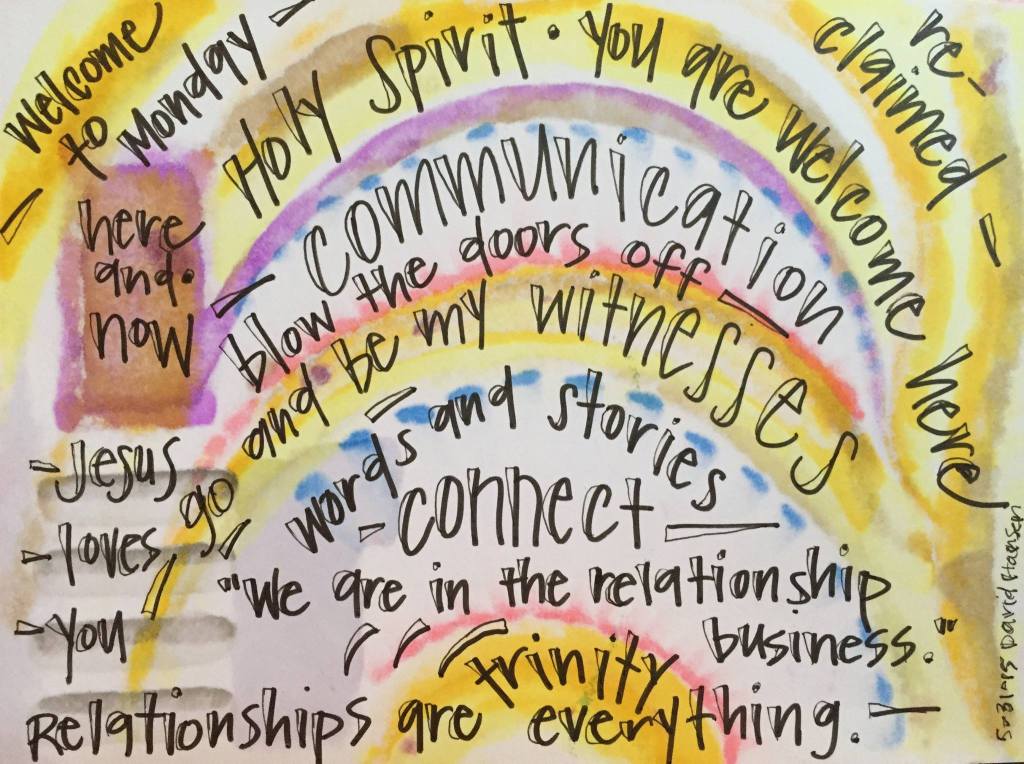 Welcome
to Monday -
Holy Spirit. You are welcome here
re-
claimed -
here
and.
now
- Communication
blow the doors off -
go and Be my witnesses
words and stories
- connect -
- Jesus
- loves
- you
"We are in the relationship
business."
trinity
Relationships are everything. -
5-31-15 David Hansen